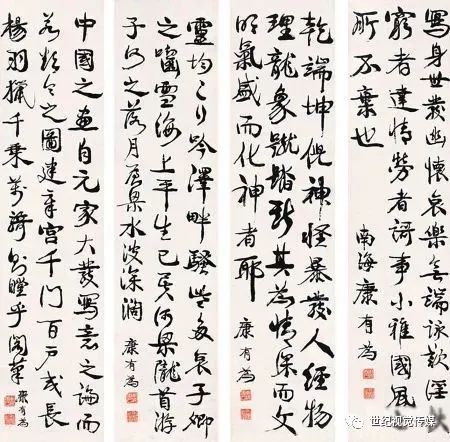 寫身世發幽懷哀樂無端詠歎淫
窮者達情勞者謌事小雅國風
所不棄也
南海康有為
乾端坤倪神怪暴發人經物
理龍象蹴踏斯其為情深而文
明氣盛而化神者耶
康有為
靈均之行吟澤畔騷些多哀子卿
之嚙雪海上平生已矣河梁隴首游
子何之落月屋梁水波深濶
康有為
中國之畫自元家大發寫意之論而
若欲令之圖建章宮千門百戶或長
楊羽獵千乘萬騎則瞠乎閣筆
康有為
世纪视觉传媒